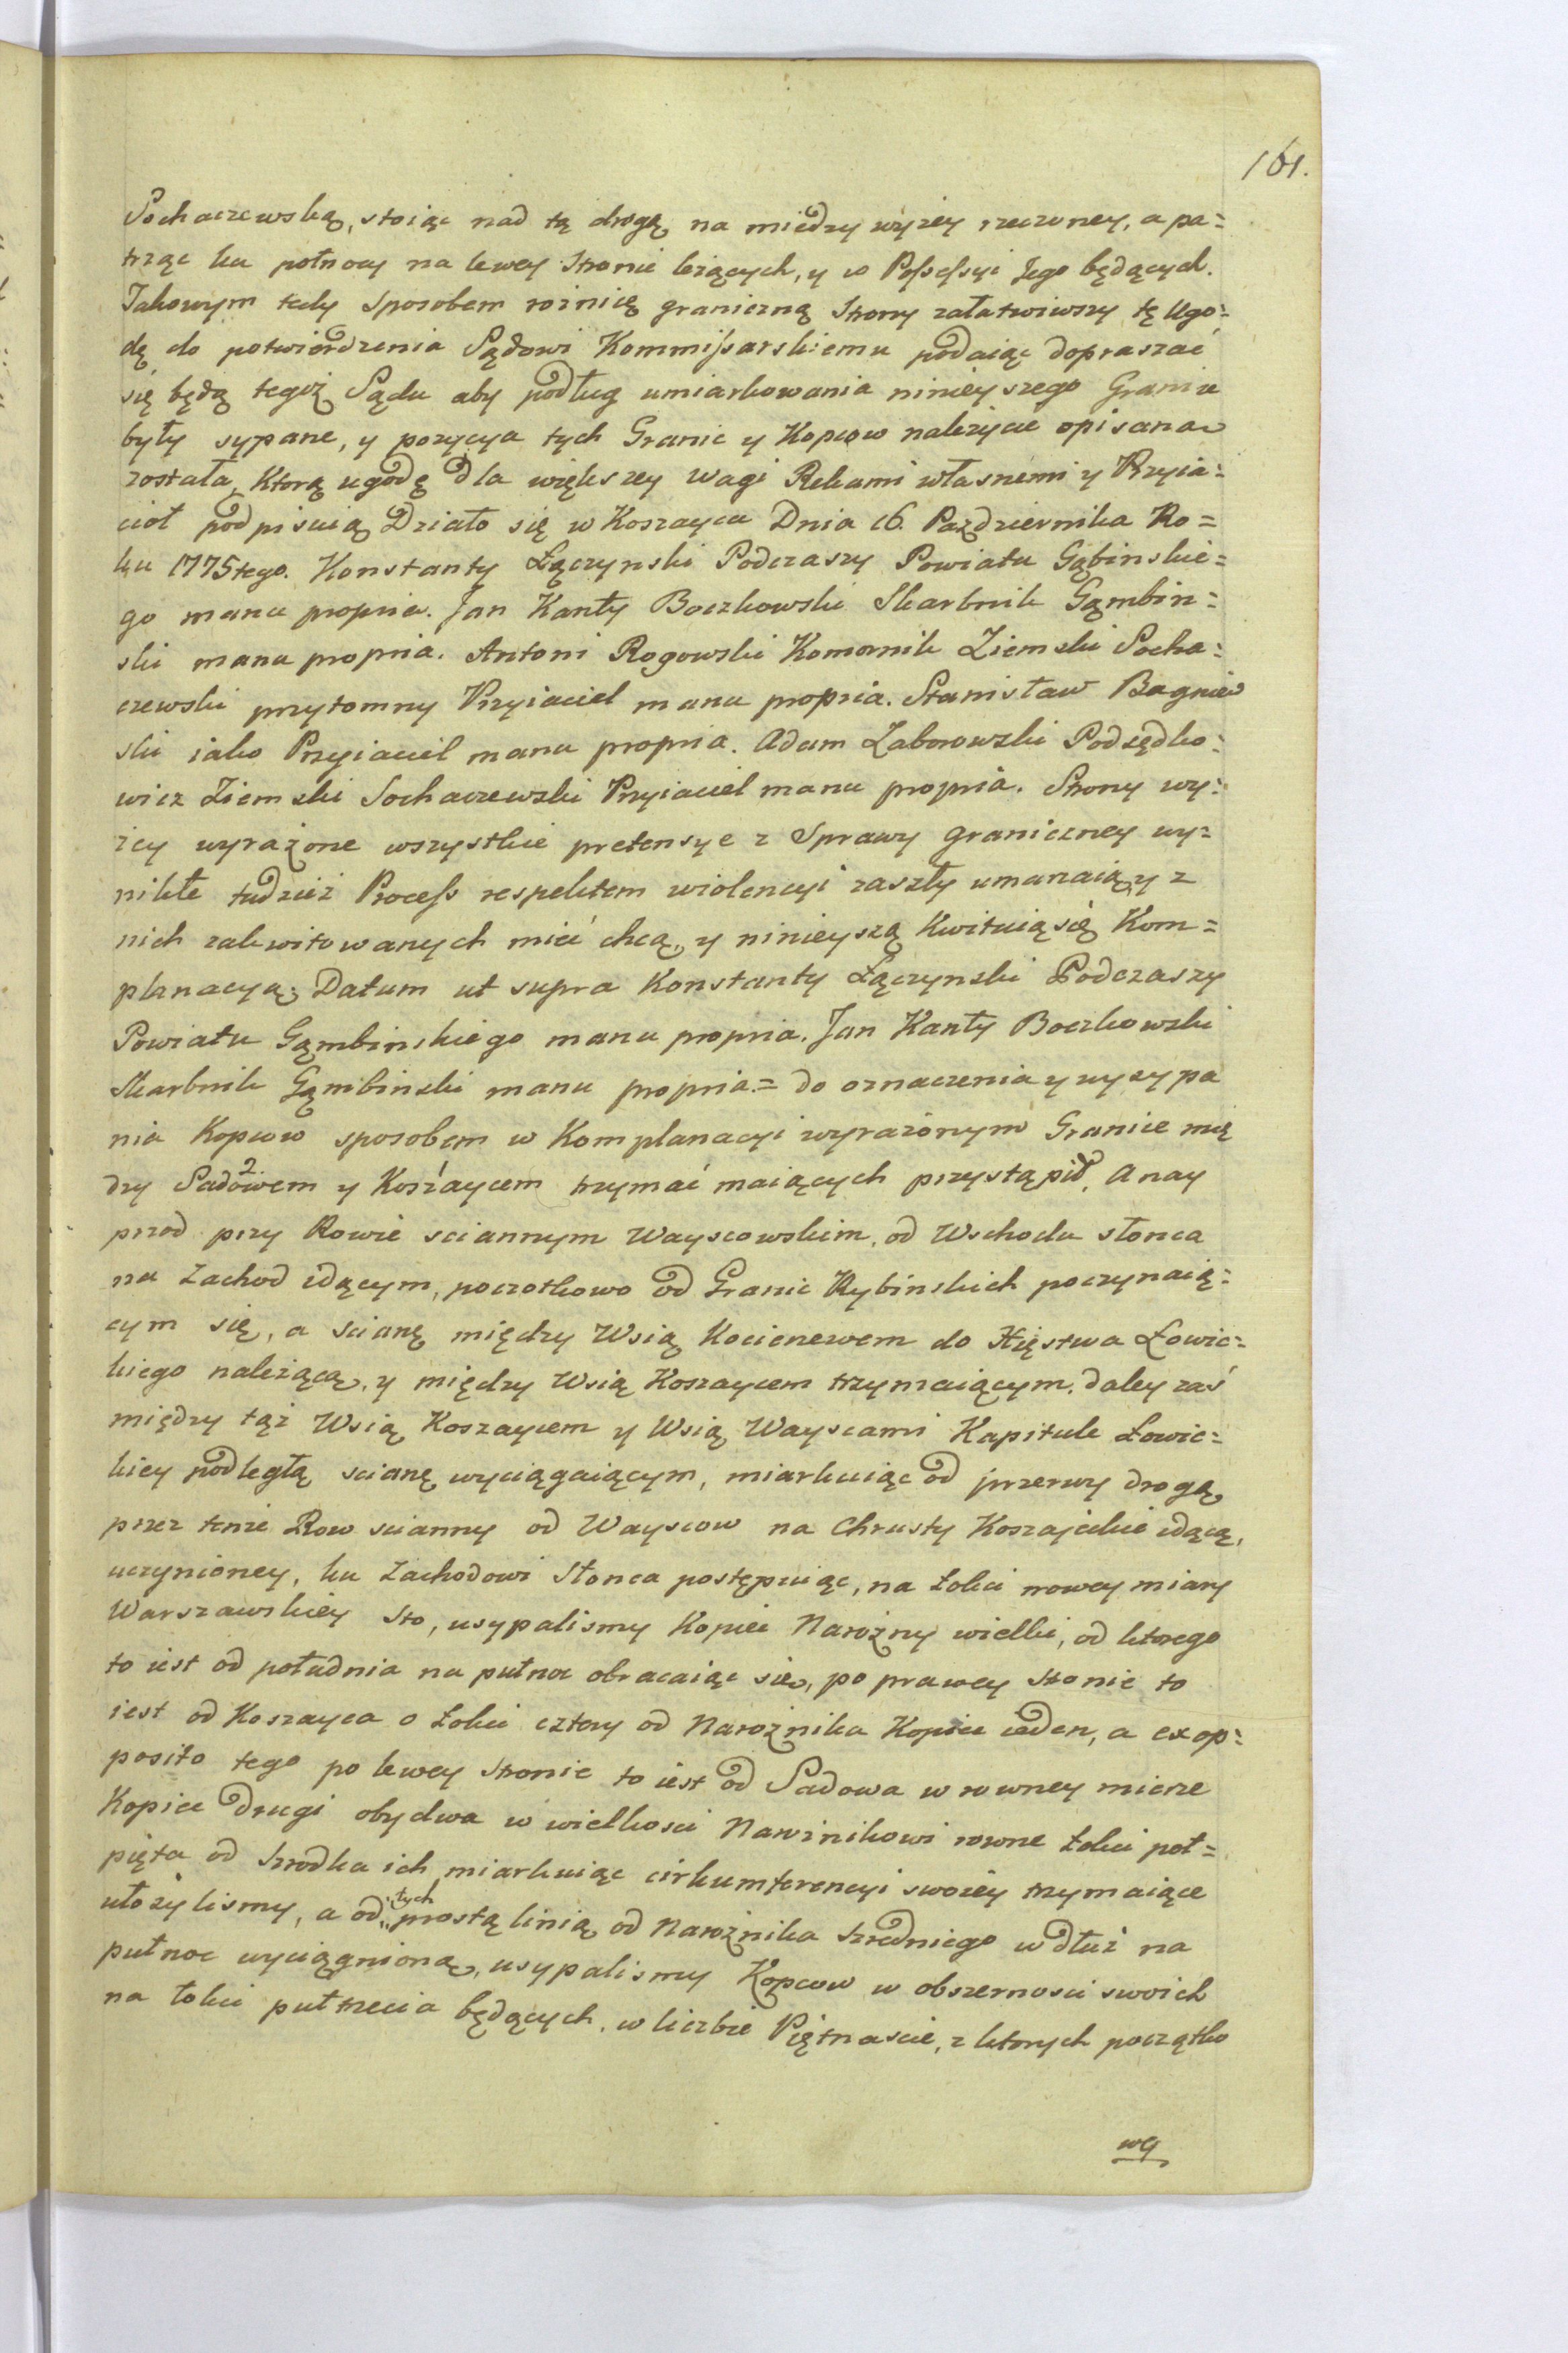 161.
Sochaczewską, stoiąc nad tą drogą na miedzy wyżey rzeczoney, a pa=
trząc ku połnocy na lewey stronie leżących, y w Possessyi Jego będących.
Jakowym tedy sposobem rożnicę graniczną Strony załatwiwszy tę Ugo=
dę do potwierdzenia Sądowi Kommissarskiemu podaiąc dopraszać
się będą tegoż Sądu aby podług umiarkowania ninieyszego Granice
były sypane, y pozycya tych Granic y Kopcow należycie opisana
została, Ktorą ugodę dla większey wagi Rekami własnemi y Przyia=
cioł podpisuią Działo się w Koszaycu Dnia 16. Pazdziernika Ro=
ku 1775tego. Konstanty Łączynski Podczaszy Powiatu Gąbinskie=
go manu propria. Jan Kanty Boczkowski Skarbnik Gąmbin=
ski manu propria. Antoni Rogowski Komornik Ziemski Socha=
czewski przytomny Przyiaciel manu propria. Stanisław Bagniew
ski iako Przyiaciel manu propria. Adam Zaborowski Podsędko=
wicz Ziemski Sochaczewski Przyiaciel manu propria. Strony wy=
żey wyrażone wszystkie pretensye z Sprawy graniczney wy=
nikłe tudzież Process respektem wiolencyi zaszły umarzaią, y z
nich zakwitowanych mieć chcą, y ninieyszą Kwituią się Kom=
planacyą; Datum ut supra Konstanty Łączynski Podczaszy
Powiatu Gąmbinskiego manu propria. Jan Kanty Boczkowski
Skarbnik Gąmbinski manu propria.= do oznaczenia y wysypa
nia Kopcow sposobem w Komplanacyi wyrażonym Granice mię
dzy Sadowem y Koszaycem trzymać maiących przystąpił, A nay
2
przod przy Rowie sciannym Wayscowskim, od Wschodu słonca
na Zachod idącym, poczotkowo od Granic Rybinskich poczynaią=
cym się, a scianę między Wsią Kocienewem do Xięstwa Łowic=
kiego należącą, y między Wsią Koszaycem trzymaiącym. daley zaś
między tąż Wsią Koszaycem y Wsią Wayscami Kapitule Łowic=
kiey podległą scianę wyciągaiącym, miarkuiąc od przerwy drogą
przez tenże Row scianny od Wayscow na Chrusty Koszajeckie idącą,
uczynioney, ku Zachodowi Słonca postępuiąc, na Łokci nowey miary
Warszawskiey Sto, usypalismy Kopiec Narożny wielki, od ktorego
to iest od południa na pułnoc obracaiąc się, po prawey stonie to
iest od Koszayca o Łokci cztery od Narożnika Kopiec ieden, a ex op=
posito tego po lewey stronie to iest od Sadowa w rowney mierze
Kopiec drugi obydwa w wielkosci Narożnikowi rowne Łokci poł=
pięta od szrodka ich miarkuiąc cirkumferencyi swoiey trzymaiące
ułożylismy, a od tych prostą linią od Narożnika szredniego wdłuż na
pułnoc wyciągnioną, usypalismy Kopcow w obszernosci swoich
na łokci pułtrzecia będących, w liczbie Piętnascie, z ktorych początko
wy